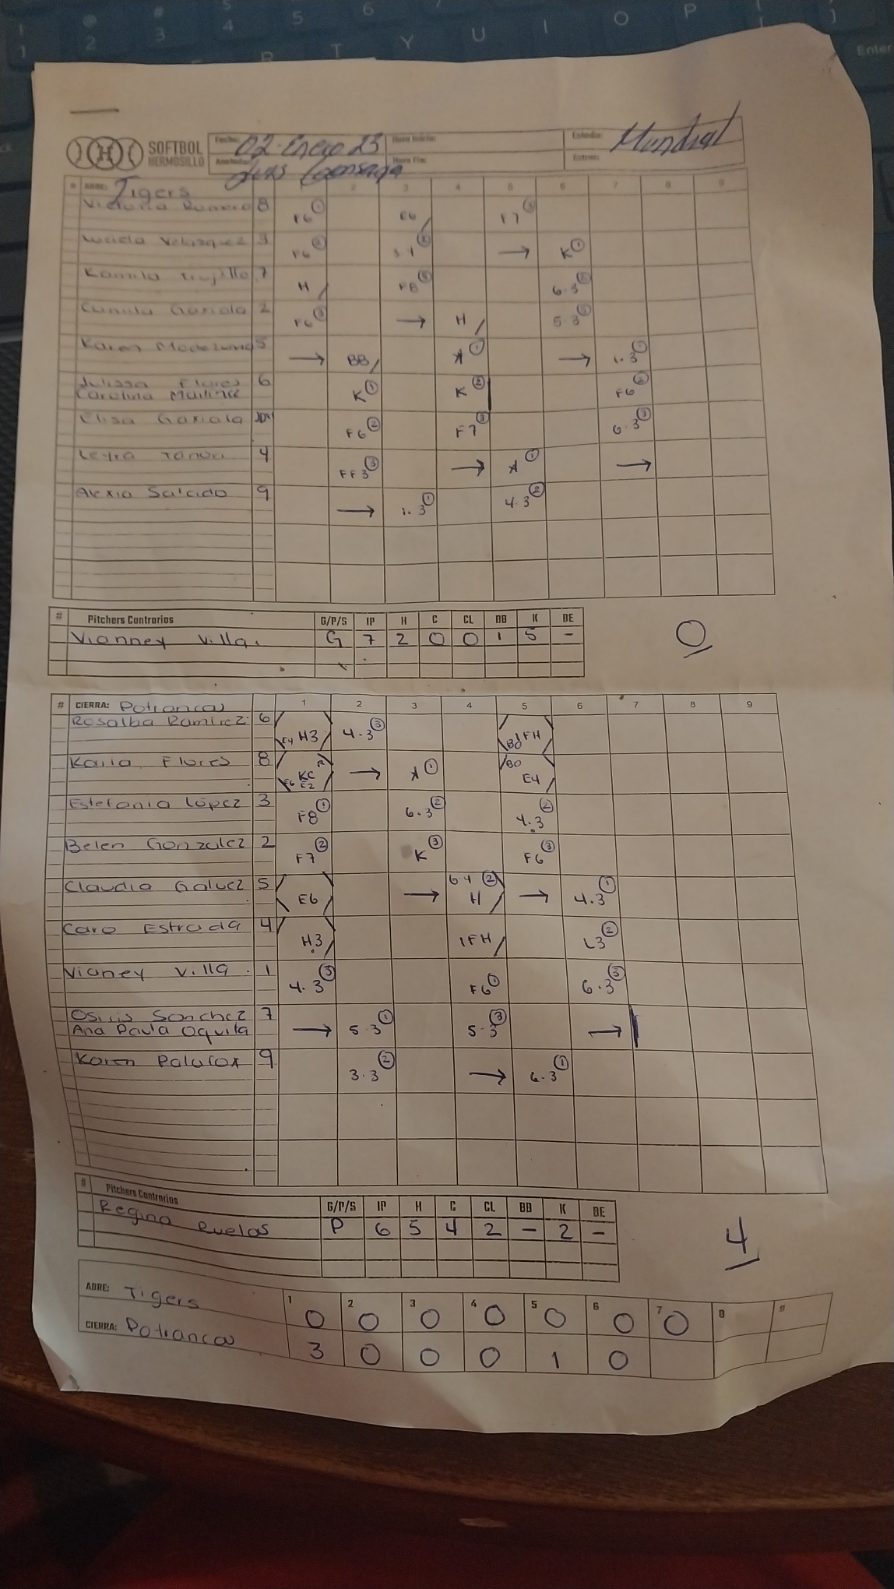 SOFTBOL
HERMOSILLO
Fecha: 02-Enero 23
Hora Inicio:
Estadio: Mundial
Anotador:
Hora Fin:
Entries:
# ABRE: Tigers 2 3 4 5 6 7 8 9
Victoria Romero 8 F6 ① F6 F7 ③
Velazquez 3 F6 ② → K ①
Kamila Trujillo 7 H F8 ③ 6.3 ②
Gaxiola 2 F6 ③ → H 5.3 ③
Karen Moctezuma 5 → BB ① → 1.3 ①
Julissa Flores 6 K ① K ② F6 ②
Carolina Martinez
Elisa Gaxiola F6 ② F7 ③ 6.3 ③
4 FF3 ③ → ① →
Alexia Salcido 9 → 1.3 ① 4.3 ②
# Pitchers Contrarios G/P/S IP H C CL BB K BE
Vianney Villa. G 7 2 0 0 1 5 -
0
# CIERRA: Potrancas 1 2 3 4 5 6 7 8 9
Rosalba Ramirez 6 E4 H3 4.3 ③ BO IFH
Karla Flores 8 E6 KC E2 → ① BO E4
Estefania López 3 F8 ① 6.3 ② 4.3 ②
Belen Gonzalez 2 F7 ② K ③ F6 ③
Claudia Galvez 5 E6 → 6 4 ② H → 4.3 ①
Caro Estrada 4 H3 IFH L3 ②
Vianey Villa. 1 4.3 ③ F6 ① 6.3 ③
Osiris Sanchez 7 → 5.3 ① 5.3 ③ →
Ana Paula Oquita
Karen Palafox 9 3.3 ② → 6.3 ①
# Pitchers Contrarios G/P/S IP H C CL BB K BE
Regina Ruelas P 6 5 4 2 - 2 -
4
ABRE: Tigers 1 0 2 0 3 0 4 0 5 0 6 0 7 0 8 9
CIERRA: Potrancas 3 0 0 0 1 0